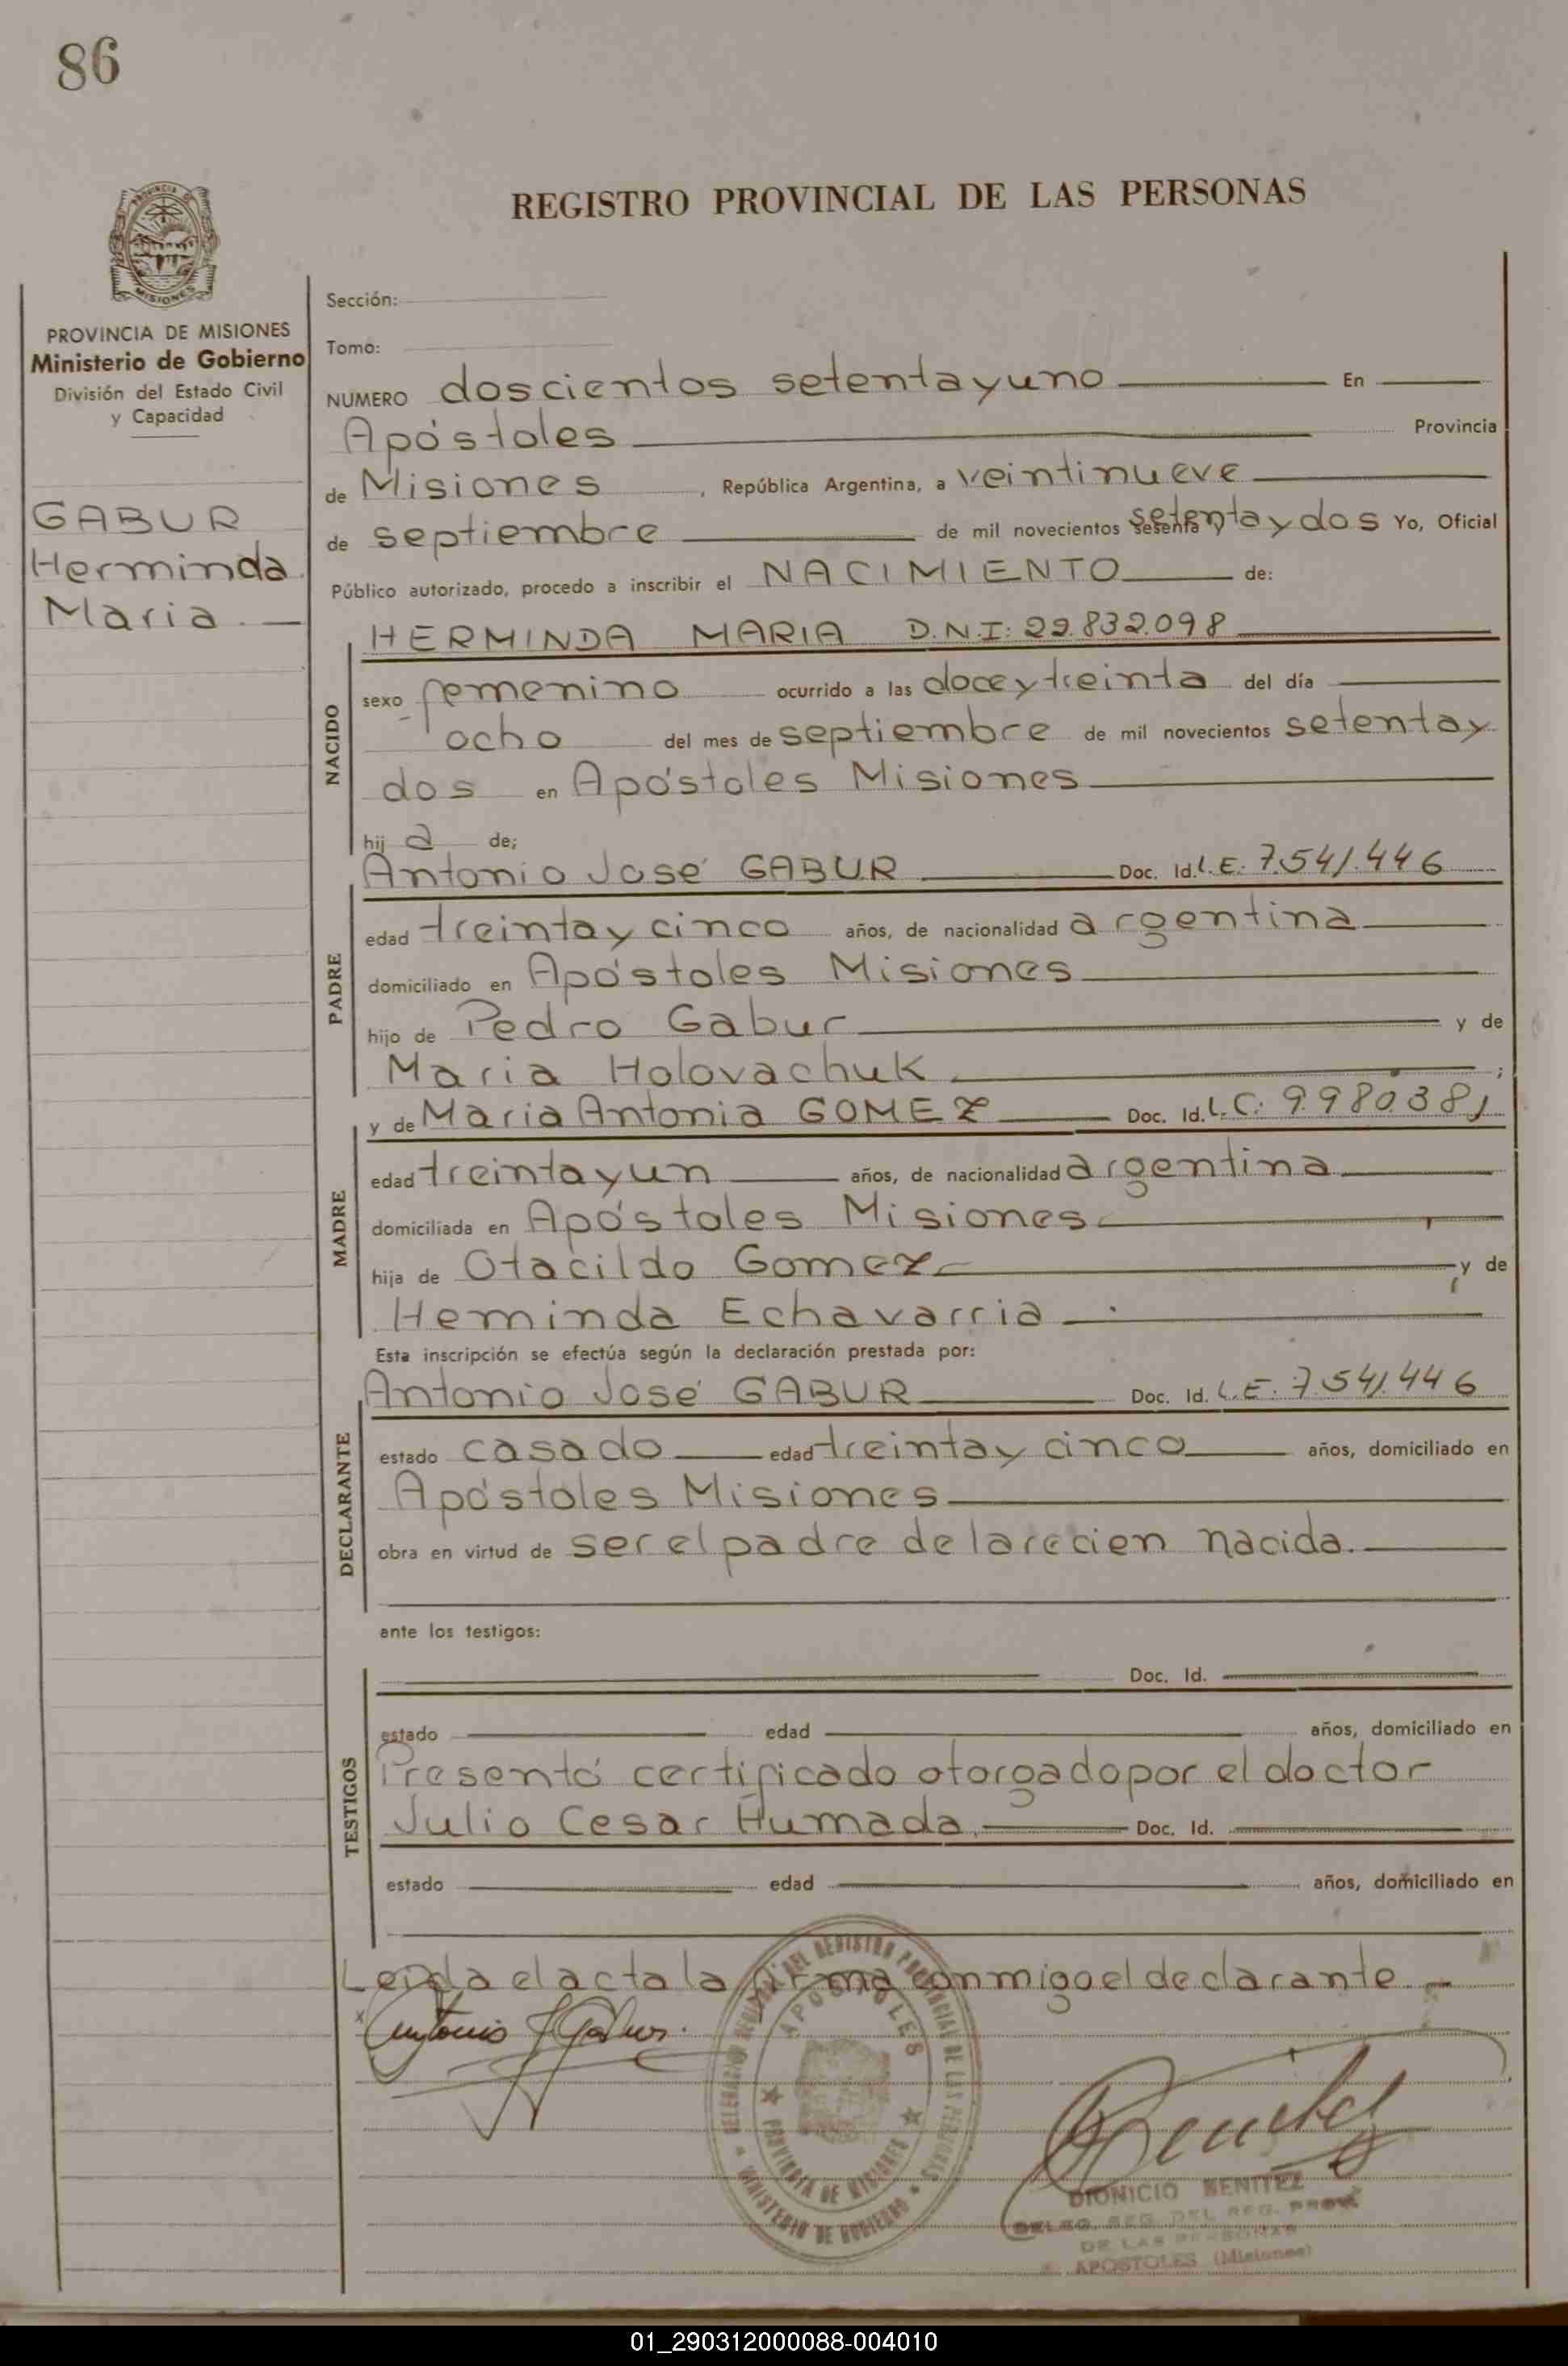 86
REGISTRO PROVINCIAL DE LAS PERSONAS
PROVINCIA DE MISIONES
Ministerio de Gobierno
División del Estado Civil
y Capacidad
GABUR
Herminda
Maria
Sección:
Tomo:
NUMERO doscientos setentayuno En
Apóstoles Provincia
de Misiones, República Argentina, a veintinueve
de septiembre de mil novecientos sesenta y setentaydos Yo, Oficial
Público autorizado, procedo a inscribir el NACIMIENTO de:
HERMINDA MARIA D.N.I: 22.832.098
NACIDO
sexo femenino ocurrido a las doceytreinta del día
ocho del mes de septiembre de mil novecientos setentay
dos en Apóstoles Misiones
hija de;
Antonio José GABUR Doc. Id. L.E. 7.541.446
PADRE
edad treintaycinco años, de nacionalidad argentina
domiciliado en Apóstoles Misiones
hijo de Pedro Gabur y de
Maria Holovachuk ;
y de Maria Antonia GOMEZ Doc. Id. L.C. 9.980.381
MADRE
edad treintayun años, de nacionalidad argentina
domiciliada en Apóstoles Misiones
hija de Otacildo Gomez y de
Heminda Echavarria
Esta inscripción se efectúa según la declaración prestada por:
Antonio José GABUR Doc. Id. L.E. 7.541.446
DECLARANTE
estado casado edad treintay cinco años, domiciliado en
Apóstoles Misiones
obra en virtud de ser el padre de la recien nacida.
ante los testigos:
Doc. Id.
TESTIGOS
estado edad años, domiciliado en
Presentó certificado otorgado por el doctor
Julio Cesar Humada Doc. Id.
estado edad años, domiciliado en
Leida el acta la firma conmigo el declarante
Antonio J Gabur
APOSTOLES
PROVINCIA DE MISIONES
MINISTERIO DE GOBIERNO
DELEGACION REGIONAL DEL REGISTRO PROVINCIAL DE LAS PERSONAS
Benitez
DIONICIO BENITEZ
DELEG. REG. DEL REG. PROV.
DE LAS PERSONAS
APOSTOLES (Misiones)
01_290312000088-004010